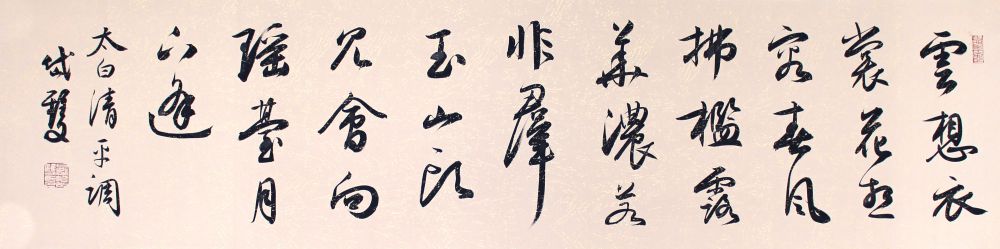 雲想衣
裳花想
容春風
拂檻露
華濃若
非羣
玉山頭
見會向
瑤臺月
下逢
太白清平調
岱